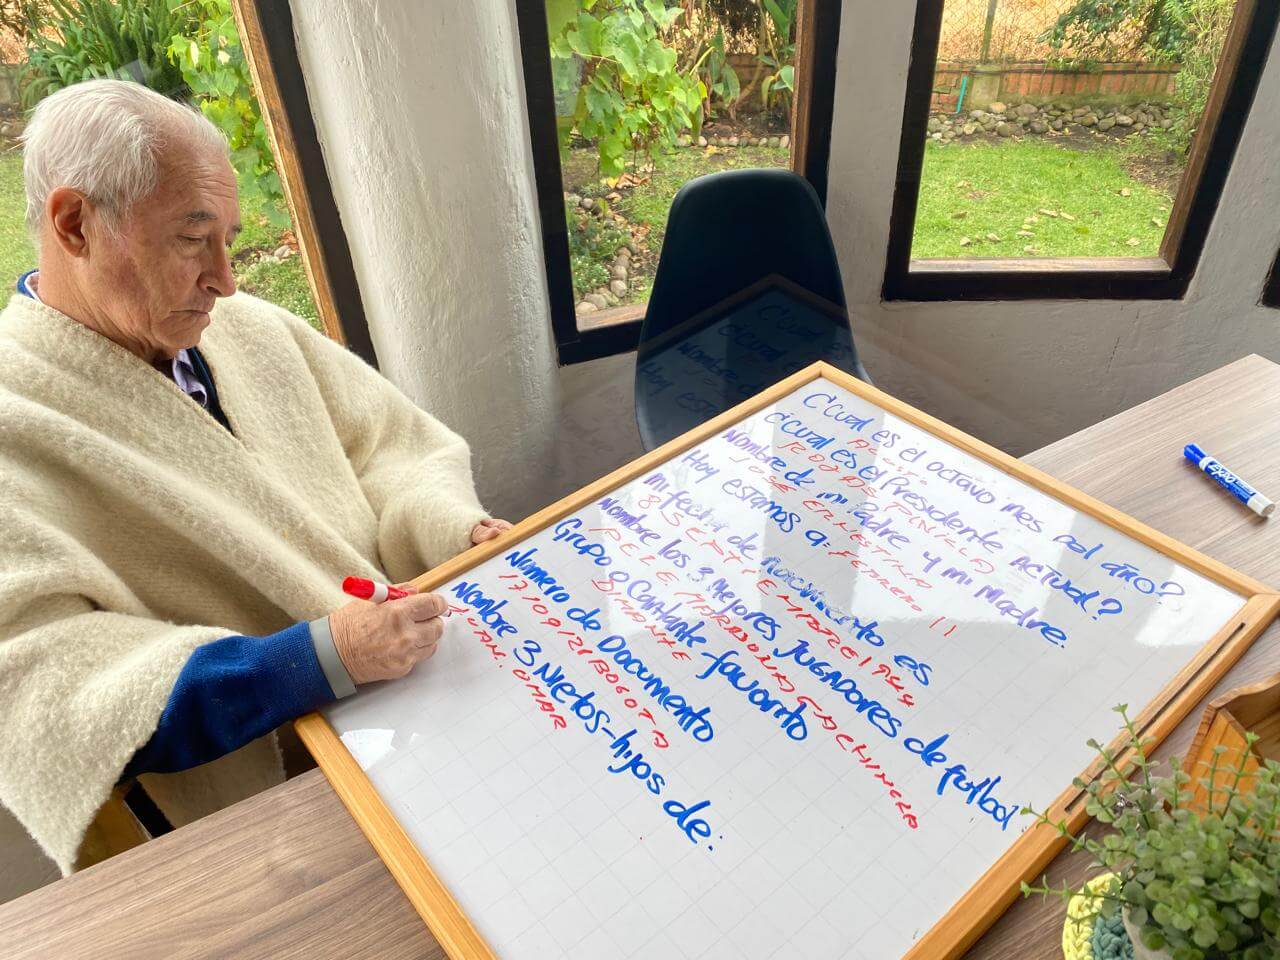 ¿Cual es el octavo mes del año?
AGOSTO
¿Cual es el Presidente Actual?
ROJAS PINILLA
Nombre de mi Padre y mi Madre.
JOSE ERNESTINA
Hoy estamos a: FEBRERO 11
mi fecha de nacimiento es
8 SEPTIEMBRE
Nombre los 3 mejores Jugadores de futbol
PELE MARADONA
Grupo o Cantante favorito
DIMANTE
Número de Documento
BOGOTA
Nombre 3 Nietos-hijos de:
JUAN. OMAR
EXPO